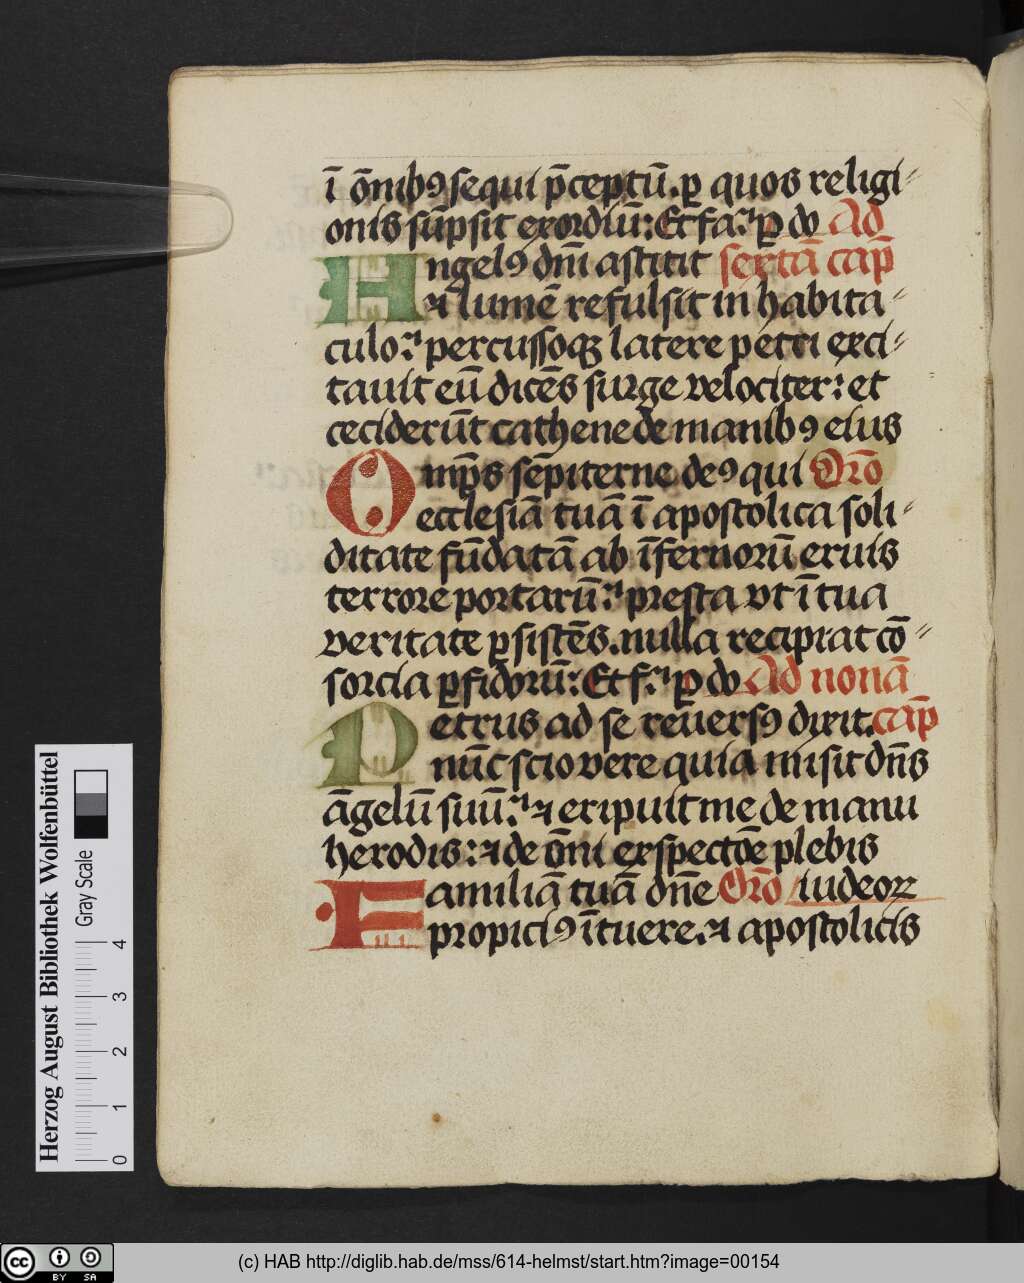 ī ōnibꝰ sequi p̄ceptū. ꝑ quos religi⸗
onis sūpsit exordiū: Et fa.͛ ꝑ dō Ad
Angelꝰ dn̄i astitit sextā cap̄
⁊ lumē refulsit in habita⸗
culo.͛ percussoqꝫ latere petri exci⸗
tauit eū dicēs surge velociter: et
ceciderūt cathene de manibꝰ eius
Omp̄s sēpiterne deꝰ qui Orō
ecclesiā tuā ī apostolica soli⸗
ditate fūdatā ab īfernorū eruis
terrore portarū.͛ presta vt ī tua
veritate ꝑsistēs. nulla recipiat cō⸗
sorcia ꝑfidorū: Et f.͛ ꝑ dō Ad nonā
Petrus ad se reuersꝰ dixit. cap̄
nūc scio vere quia misit dn̄s
āgelū suū.͛ ⁊ eripuit me de manu
herodis: ⁊ de ōni exspectōe plebis
Familiā tuā dn̄e Orō iudeoꝝ
propiciꝰ ītuere. ⁊ apostolicis
Herzog August Bibliothek Wolfenbüttel
Gray Scale
0 1 2 3 4
cc BY SA
(c) HAB http://diglib.hab.de/mss/614-helmst/start.htm?image=00154